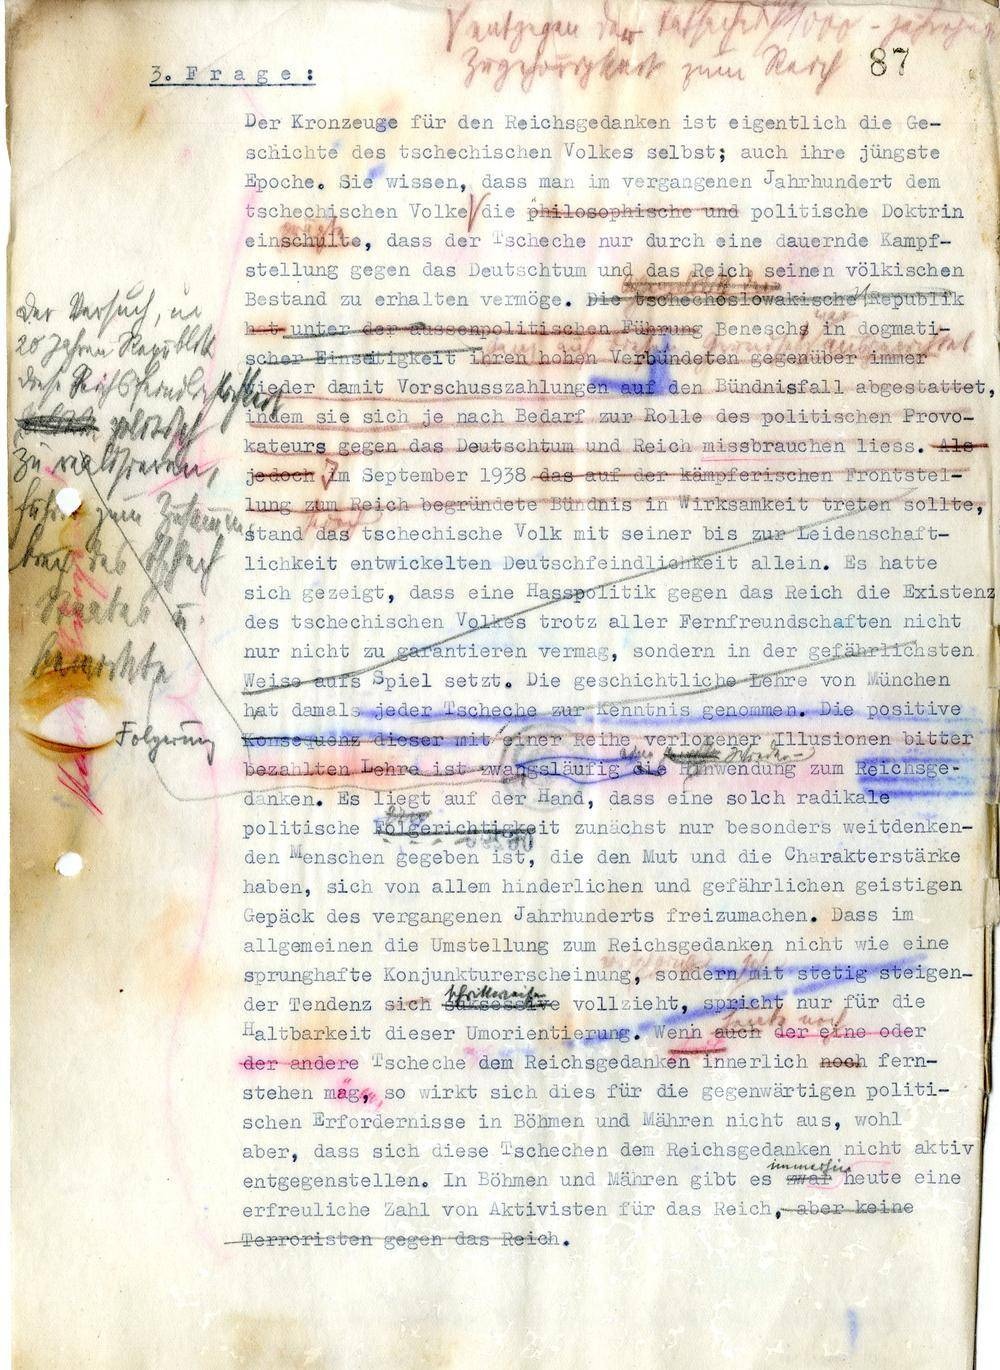 entgegen der 1000-jährigen
Zugehörigkeit zum Reich
87
3. Frage:
Der Kronzeuge für den Reichsgedanken ist eigentlich die Ge-
schichte des tschechischen Volkes selbst; auch ihre jüngste
Epoche. Sie wissen, dass man im vergangenen Jahrhundert dem
tschechischen Volke die philosophische und politische Doktrin
einschulte, dass der Tscheche nur durch eine dauernde Kampf-
stellung gegen das Deutschtum und das Reich seinen völkischen
Bestand zu erhalten vermöge. Die tschechoslowakische Republik
hat unter der aussenpolitischen Führung Beneschs in dogmati-
scher Einseitigkeit ihren hohen Verbündeten gegenüber immer
wieder damit Vorschusszahlungen auf den Bündnisfall abgestattet,
indem sie sich je nach Bedarf zur Rolle des politischen Provo-
kateurs gegen das Deutschtum und Reich missbrauchen liess. Als
jedoch im September 1938 das auf der kämpferischen Frontstel-
lung zum Reich begründete Bündnis in Wirksamkeit treten sollte,
stand das tschechische Volk mit seiner bis zur Leidenschaft-
lichkeit entwickelten Deutschfeindlichkeit allein. Es hatte
sich gezeigt, dass eine Hasspolitik gegen das Reich die Existenz
des tschechischen Volkes trotz aller Fernfreundschaften nicht
nur nicht zu garantieren vermag, sondern in der gefährlichsten
Weise aufs Spiel setzt. Die geschichtliche Lehre von München
hat damals jeder Tscheche zur Kenntnis genommen. Die positive
Konsequenz dieser mit einer Reihe verlorener Illusionen bitter
bezahlten Lehre ist zwangsläufig die Hinwendung zum Reichsge-
danken. Es liegt auf der Hand, dass eine solch radikale
politische Folgerichtigkeit zunächst nur besonders weitdenken-
den Menschen gegeben ist, die den Mut und die Charakterstärke
haben, sich von allem hinderlichen und gefährlichen geistigen
Gepäck des vergangenen Jahrhunderts freizumachen. Dass im
allgemeinen die Umstellung zum Reichsgedanken nicht wie eine
sprunghafte Konjunkturerscheinung, sondern mit stetig steigen-
schrittweise
der Tendenz sich suksessive vollzieht, spricht nur für die
Haltbarkeit dieser Umorientierung. Wenn auch der eine oder
der andere Tscheche dem Reichsgedanken innerlich noch fern-
stehen mag, so wirkt sich dies für die gegenwärtigen politi-
schen Erfordernisse in Böhmen und Mähren nicht aus, wohl
aber, dass sich diese Tschechen dem Reichsgedanken nicht aktiv
immerhin
entgegenstellen. In Böhmen und Mähren gibt es zwar heute eine
erfreuliche Zahl von Aktivisten für das Reich, aber keine
Terroristen gegen das Reich.
Der Versuch, in
20 Jahren Republik
diese Reichsfeindlichkeit
politisch
zu realisieren,
führte zum Zusammen-
bruch des
Staates u.
Folgerung